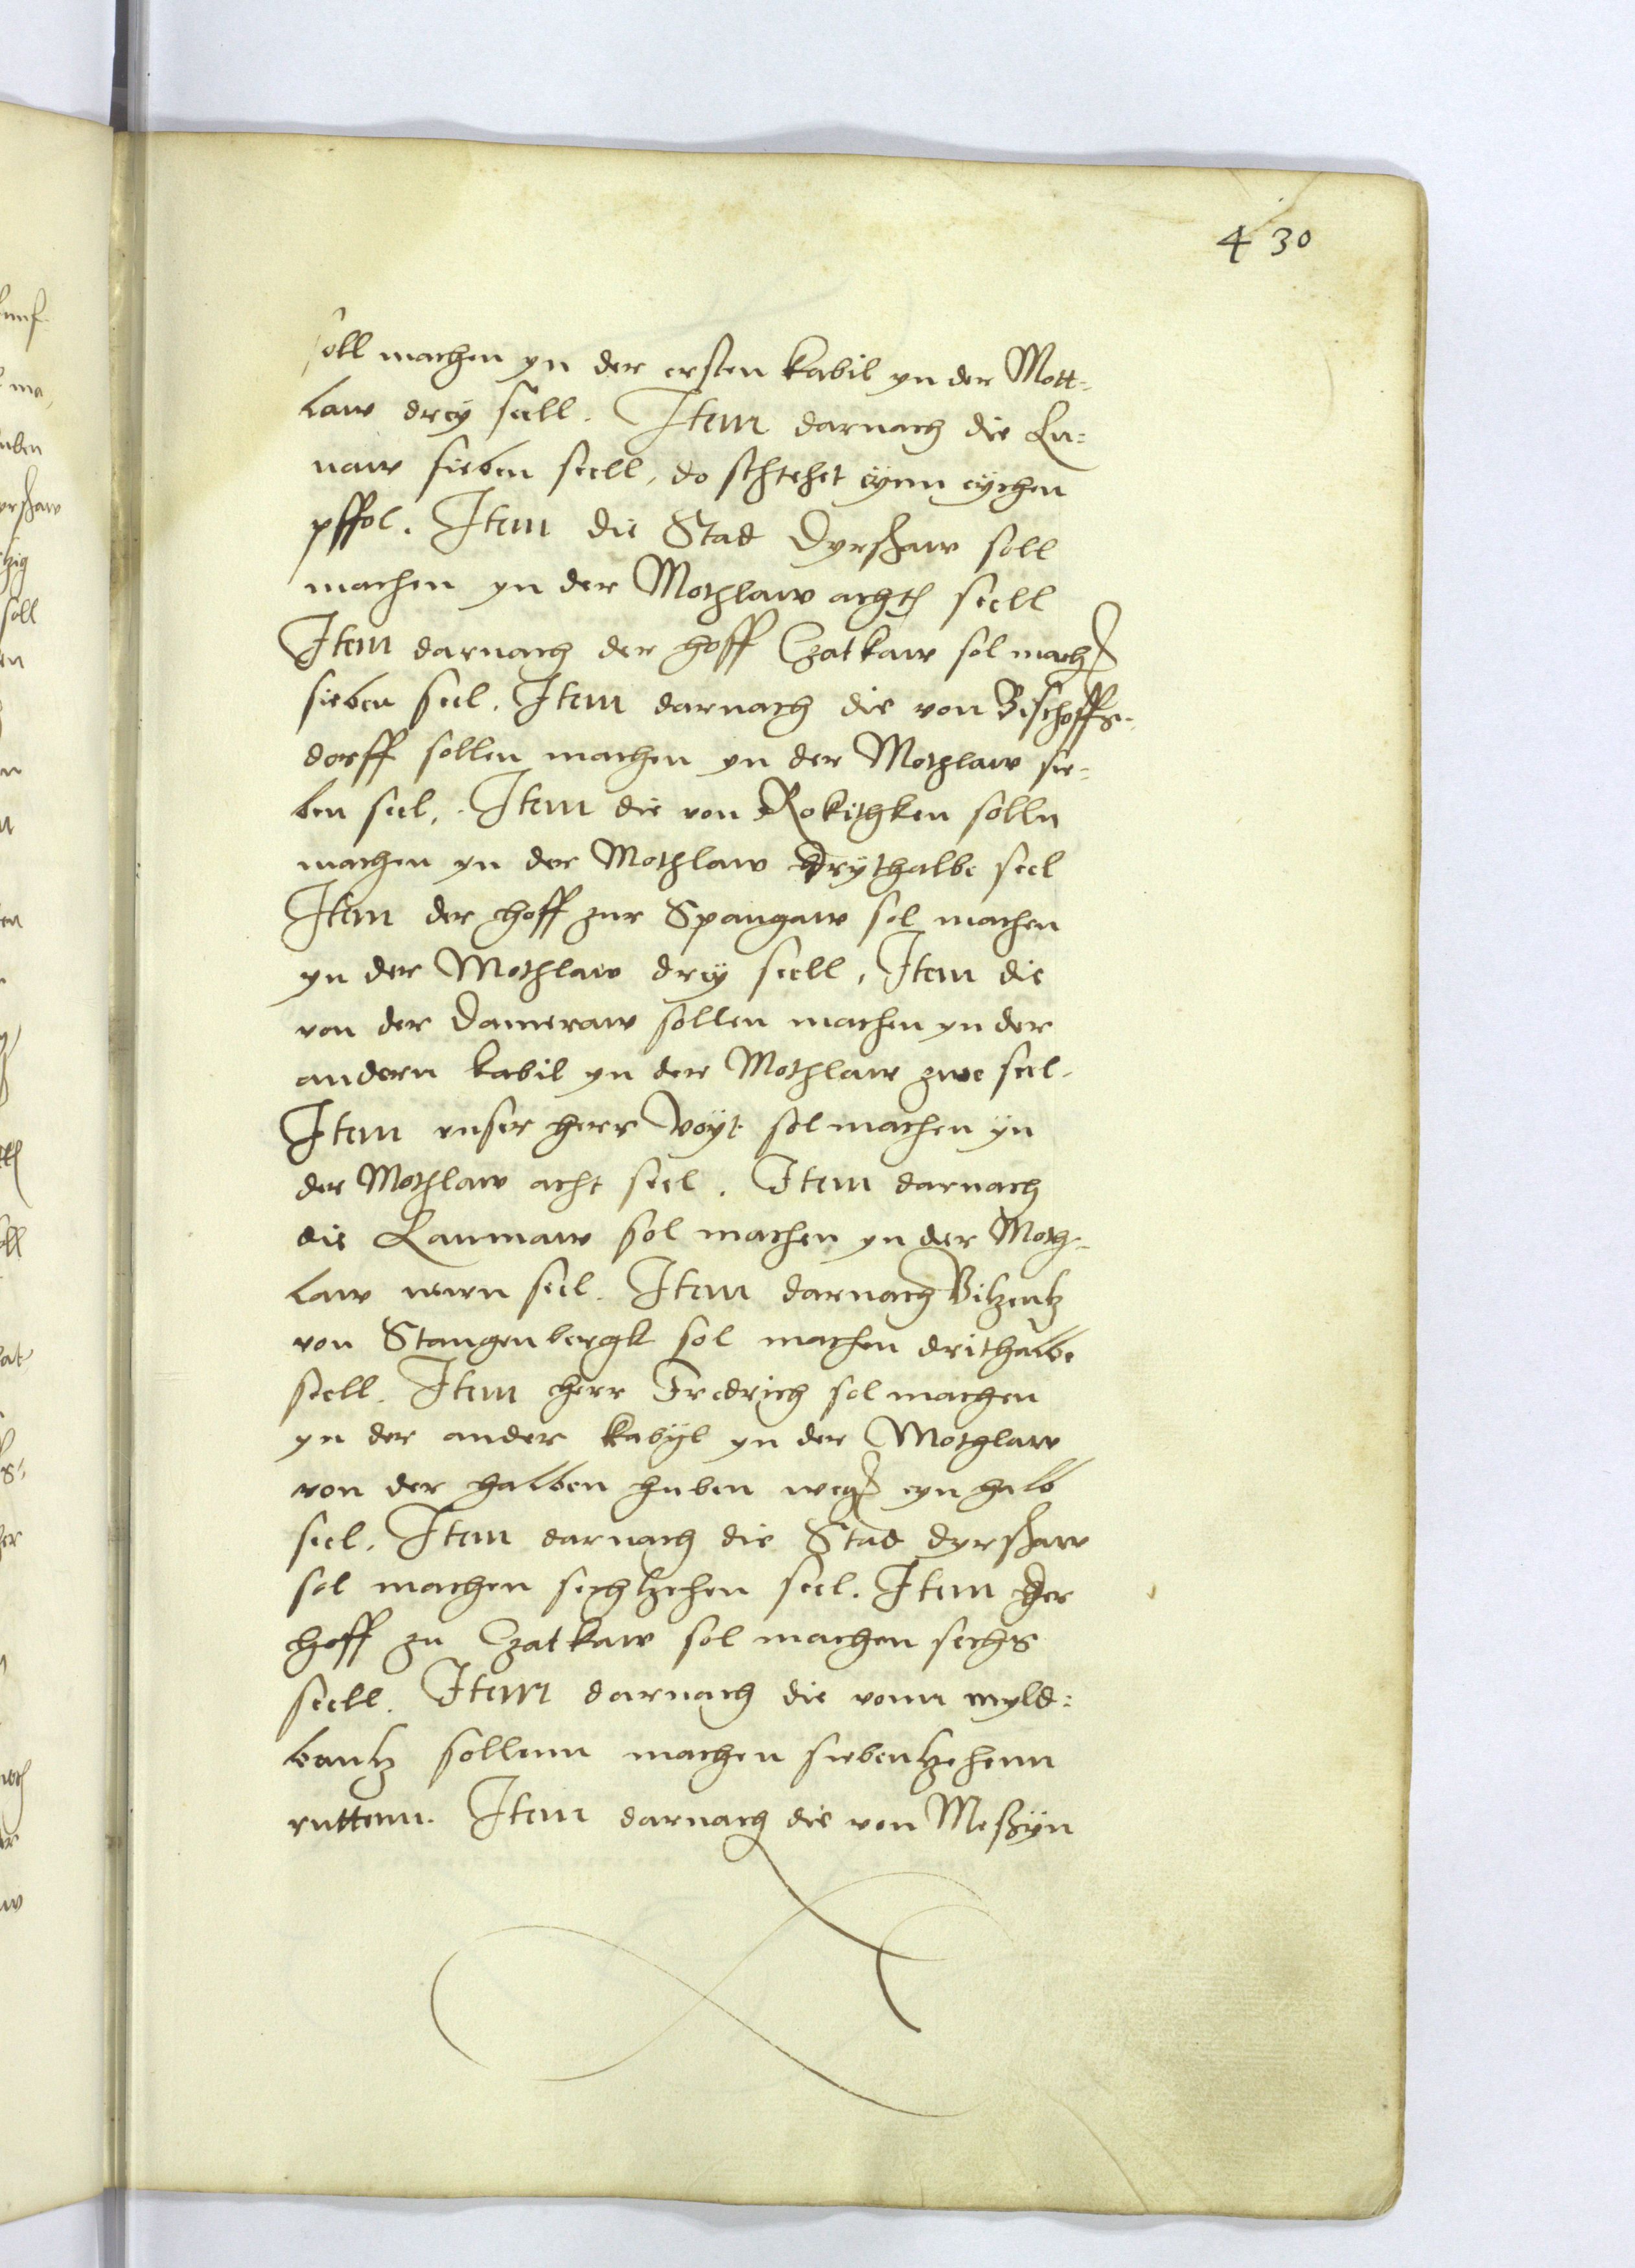 430
soll machen yn der ersten kabil yn der Mott-
law drey seell. Item darnach die Lu-
naw sieben seell, do schtehet eynn eychen
pffol. Item die Stad Dyrschaw soll
machen yn der Mothlaw acht seell
Item darnach der hoff Czatkaw sol mach
sieben seel. Item darnach die von Bischoffs-
dorff sollen machen yn der Mothlaw sie-
ben seel. Item die von Rokithken solln
machen yn der Mothlaw drythalbe seel
Item der hoff zur Spangaw sol machen
yn der Mothlaw drey seell, Item die
von der Dameraw sollen machen yn der
andern kabil yn der Mothlaw zwe seel.
Item vnser herr Voyt sol machen yn
der Mothlaw acht seel. Item darnach
die Lunnaw sol machen yn der Moth-
law newn seel. Item darnach Vitzentz
von Stangenbergk sol machen drithalbe
seell. Item herr Fredrich sol machen
yn der ander kabyl yn der Mothlaw
von der halben huben weg eyn halb
seel. Item darnach die Stad dyrschaw
sol machen sechtzehen seel. Item der
hoff zu Czatkaw sol machen sechs
seell. Item darnach die vonn myld-
bantz sollenn machen siebentzehenn
ruttenn. Item darnach die von Meßyn